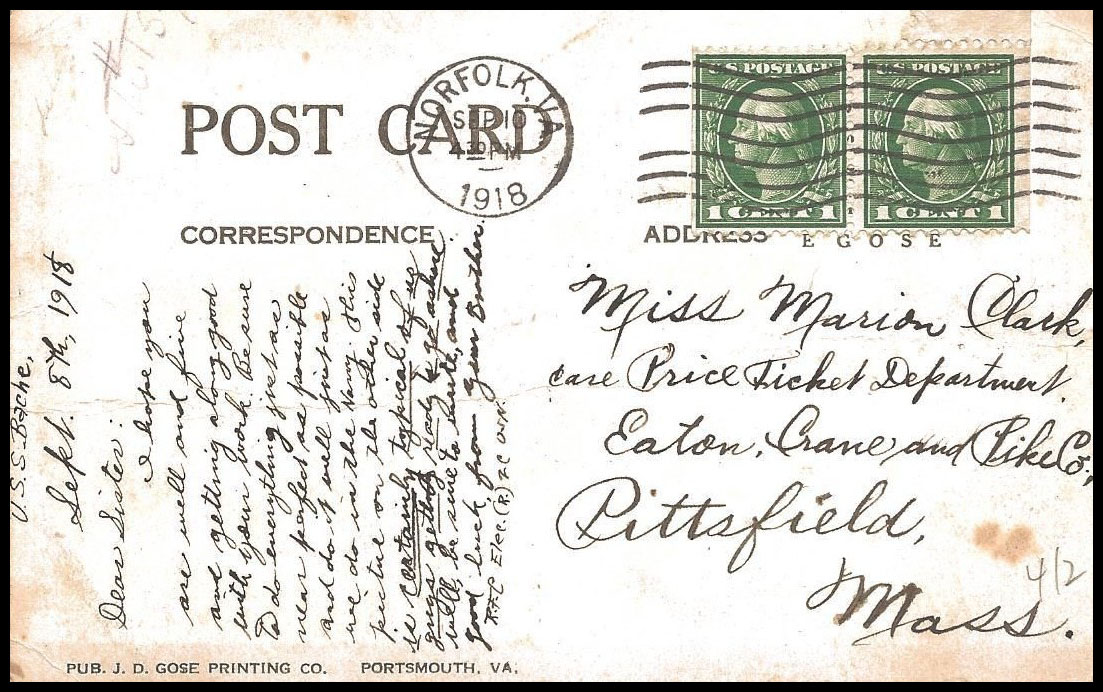 POST CARD
NORFOLK, VA.
SEP 10
4 30 PM
1918
U.S. POSTAGE
1 CENT 1
U.S. POSTAGE
1 CENT 1
CORRESPONDENCE
ADDRESS
E GOSE
U.S.S. Bache,
Sept. 8th, 1918
Dear Sister:
I hope you
are well and fine
and getting along good
with your work. Be sure
To do everything just as
near perfect as possible
and do it well just as
we do in the Navy. This
picture on the other side
is certainly typical of us
guys getting ready to go ashore
Well, be sure to write, and
good luck, from your Brother.
Elec. (R) 2C U.S.N.
Miss Marion Clark,
care Price Ticket Department.
Eaton, Crane and Pike Co.,
Pittsfield,
Mass.
4/2
PUB. J. D. GOSE PRINTING CO. PORTSMOUTH, VA.